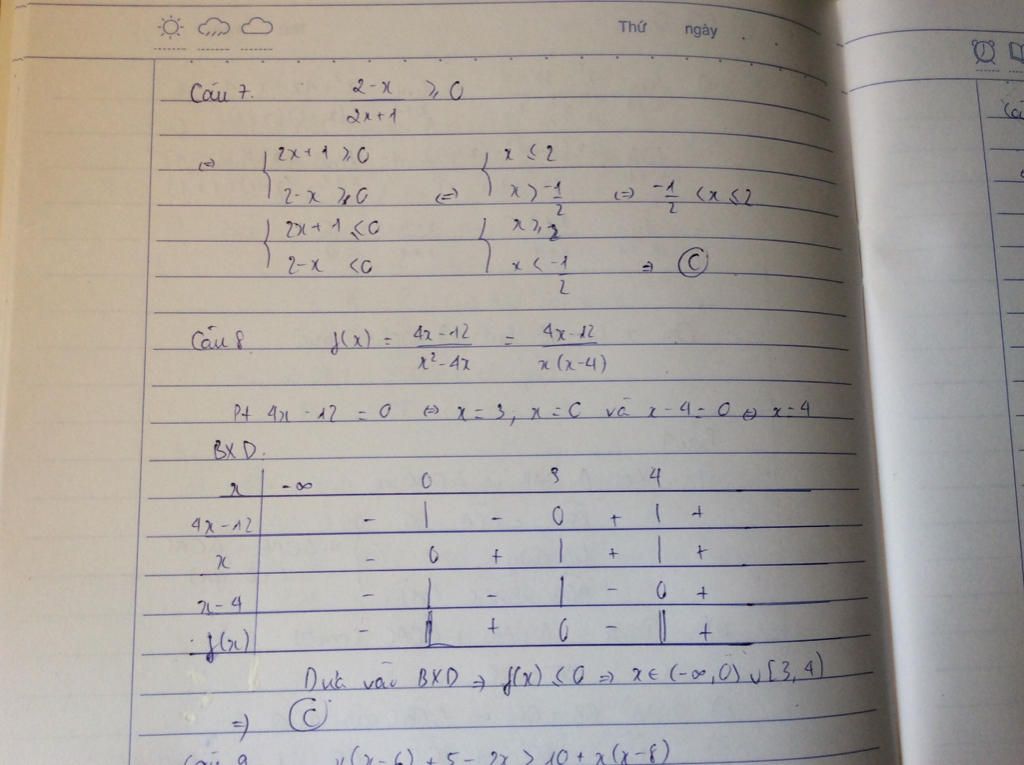 Thứ ngày
Câu 7. \frac{2-x}{2x+1} ≥ 0
⇔ { 2x+1 ≥ 0 { x ≤ 2
2-x ≥ 0 ⇔ x > \frac{-1}{2} ⇔ \frac{-1}{2} < x ≤ 2
{ 2x+1 ≤ 0 { x ≥ 2
2-x < 0 x < \frac{-1}{2} ⇒ C
Câu 8 f(x) = \frac{4x-12}{x²-4x} = \frac{4x-12}{x(x-4)}
Pt 4x-12 = 0 ⇔ x = 3, x = 0 và x-4 = 0 ⇔ x = 4
BXD.
x -∞ 0 3 4
4x-12 - | - 0 + | +
x - 0 + | + | +
x-4 - | - | - 0 +
f(x) - || + 0 - || +
Dựa vào BXD ⇒ f(x) ≤ 0 ⇒ x ∈ (-∞, 0) ∪ [3, 4)
⇒ C
Câu 9 x(x-6) + 5 - 2x > 10 + x(x-8)